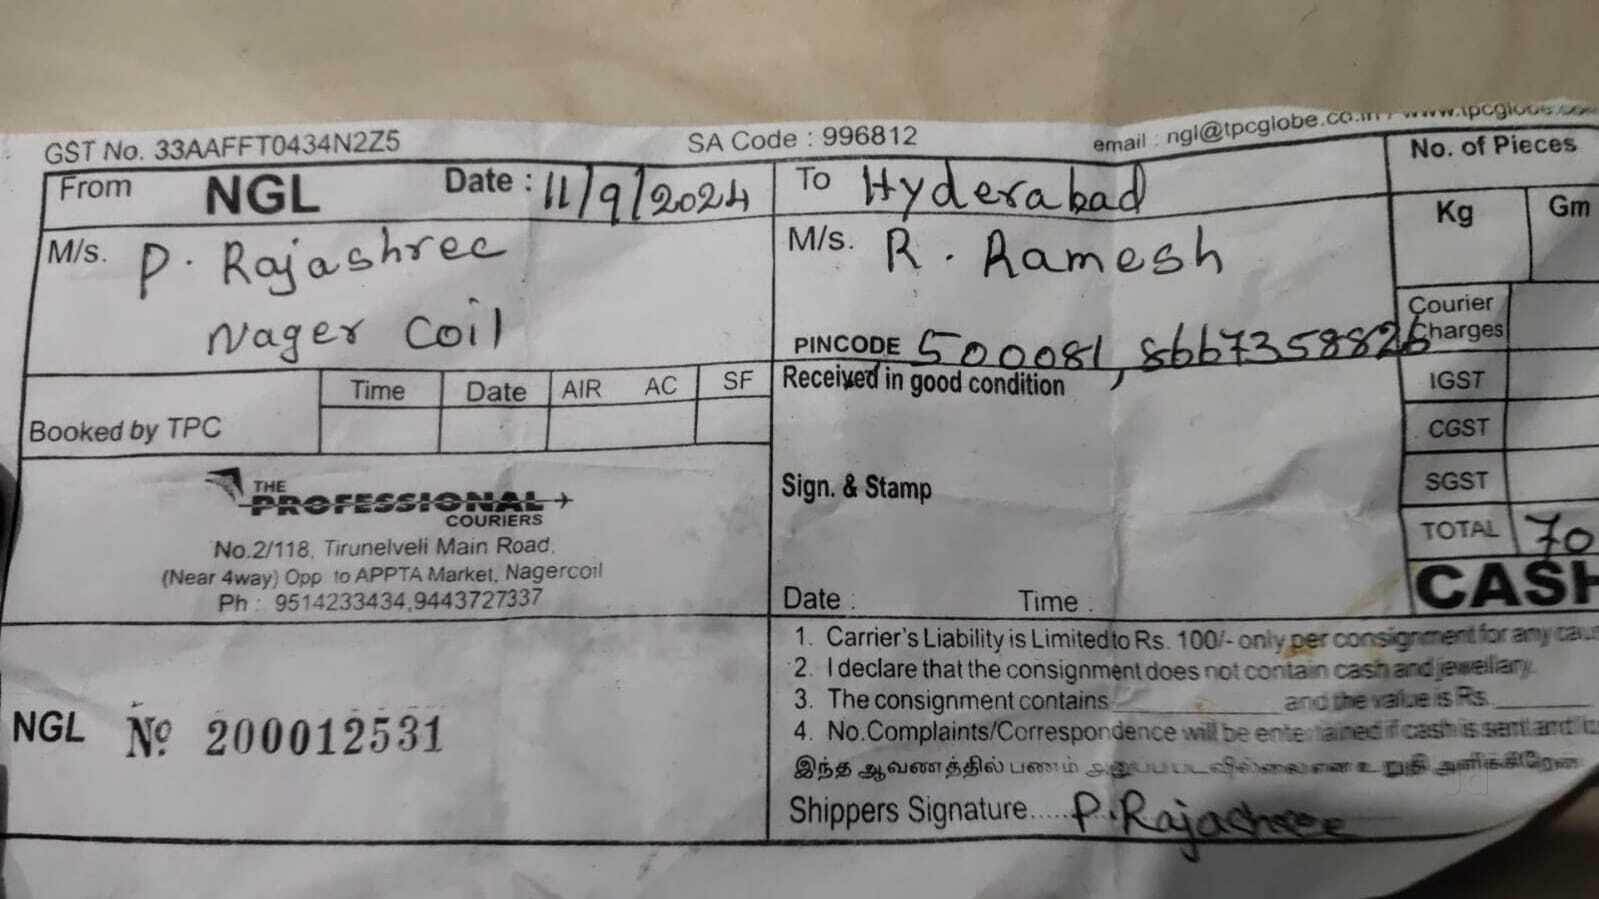 GST No. 33AAFFT0434N2Z5 SA Code : 996812 email : ngl@tpcglobe.co.in / www.tpcglobe.com
From NGL Date : 11/9/2024 To Hyderabad No. of Pieces
M/s. P. Rajashree M/s. R. Ramesh Kg Gm
Nager Coil
PINCODE 500081, 8667358826 Courier Charges
Time Date AIR AC SF Received in good condition IGST
Booked by TPC CGST
THE PROFESSIONAL COURIERS Sign. & Stamp SGST
No.2/118, Tirunelveli Main Road, TOTAL 70
(Near 4way) Opp to APPTA Market, Nagercoil CASH
Ph : 9514233434,9443727337 Date : Time :
1. Carrier's Liability is Limited to Rs. 100/- only per consignment for any
2. I declare that the consignment does not contain cash and jewellary.
3. The consignment contains and the value is Rs.
NGL № 200012531
4. No.Complaints/Correspondence will be entertained if cash is sent and
இந்த ஆவணத்தில் பணம் அனுப்பபடவில்லை என உறுதி அளிக்கிறேன்
Shippers Signature..... P. Rajashree
jd